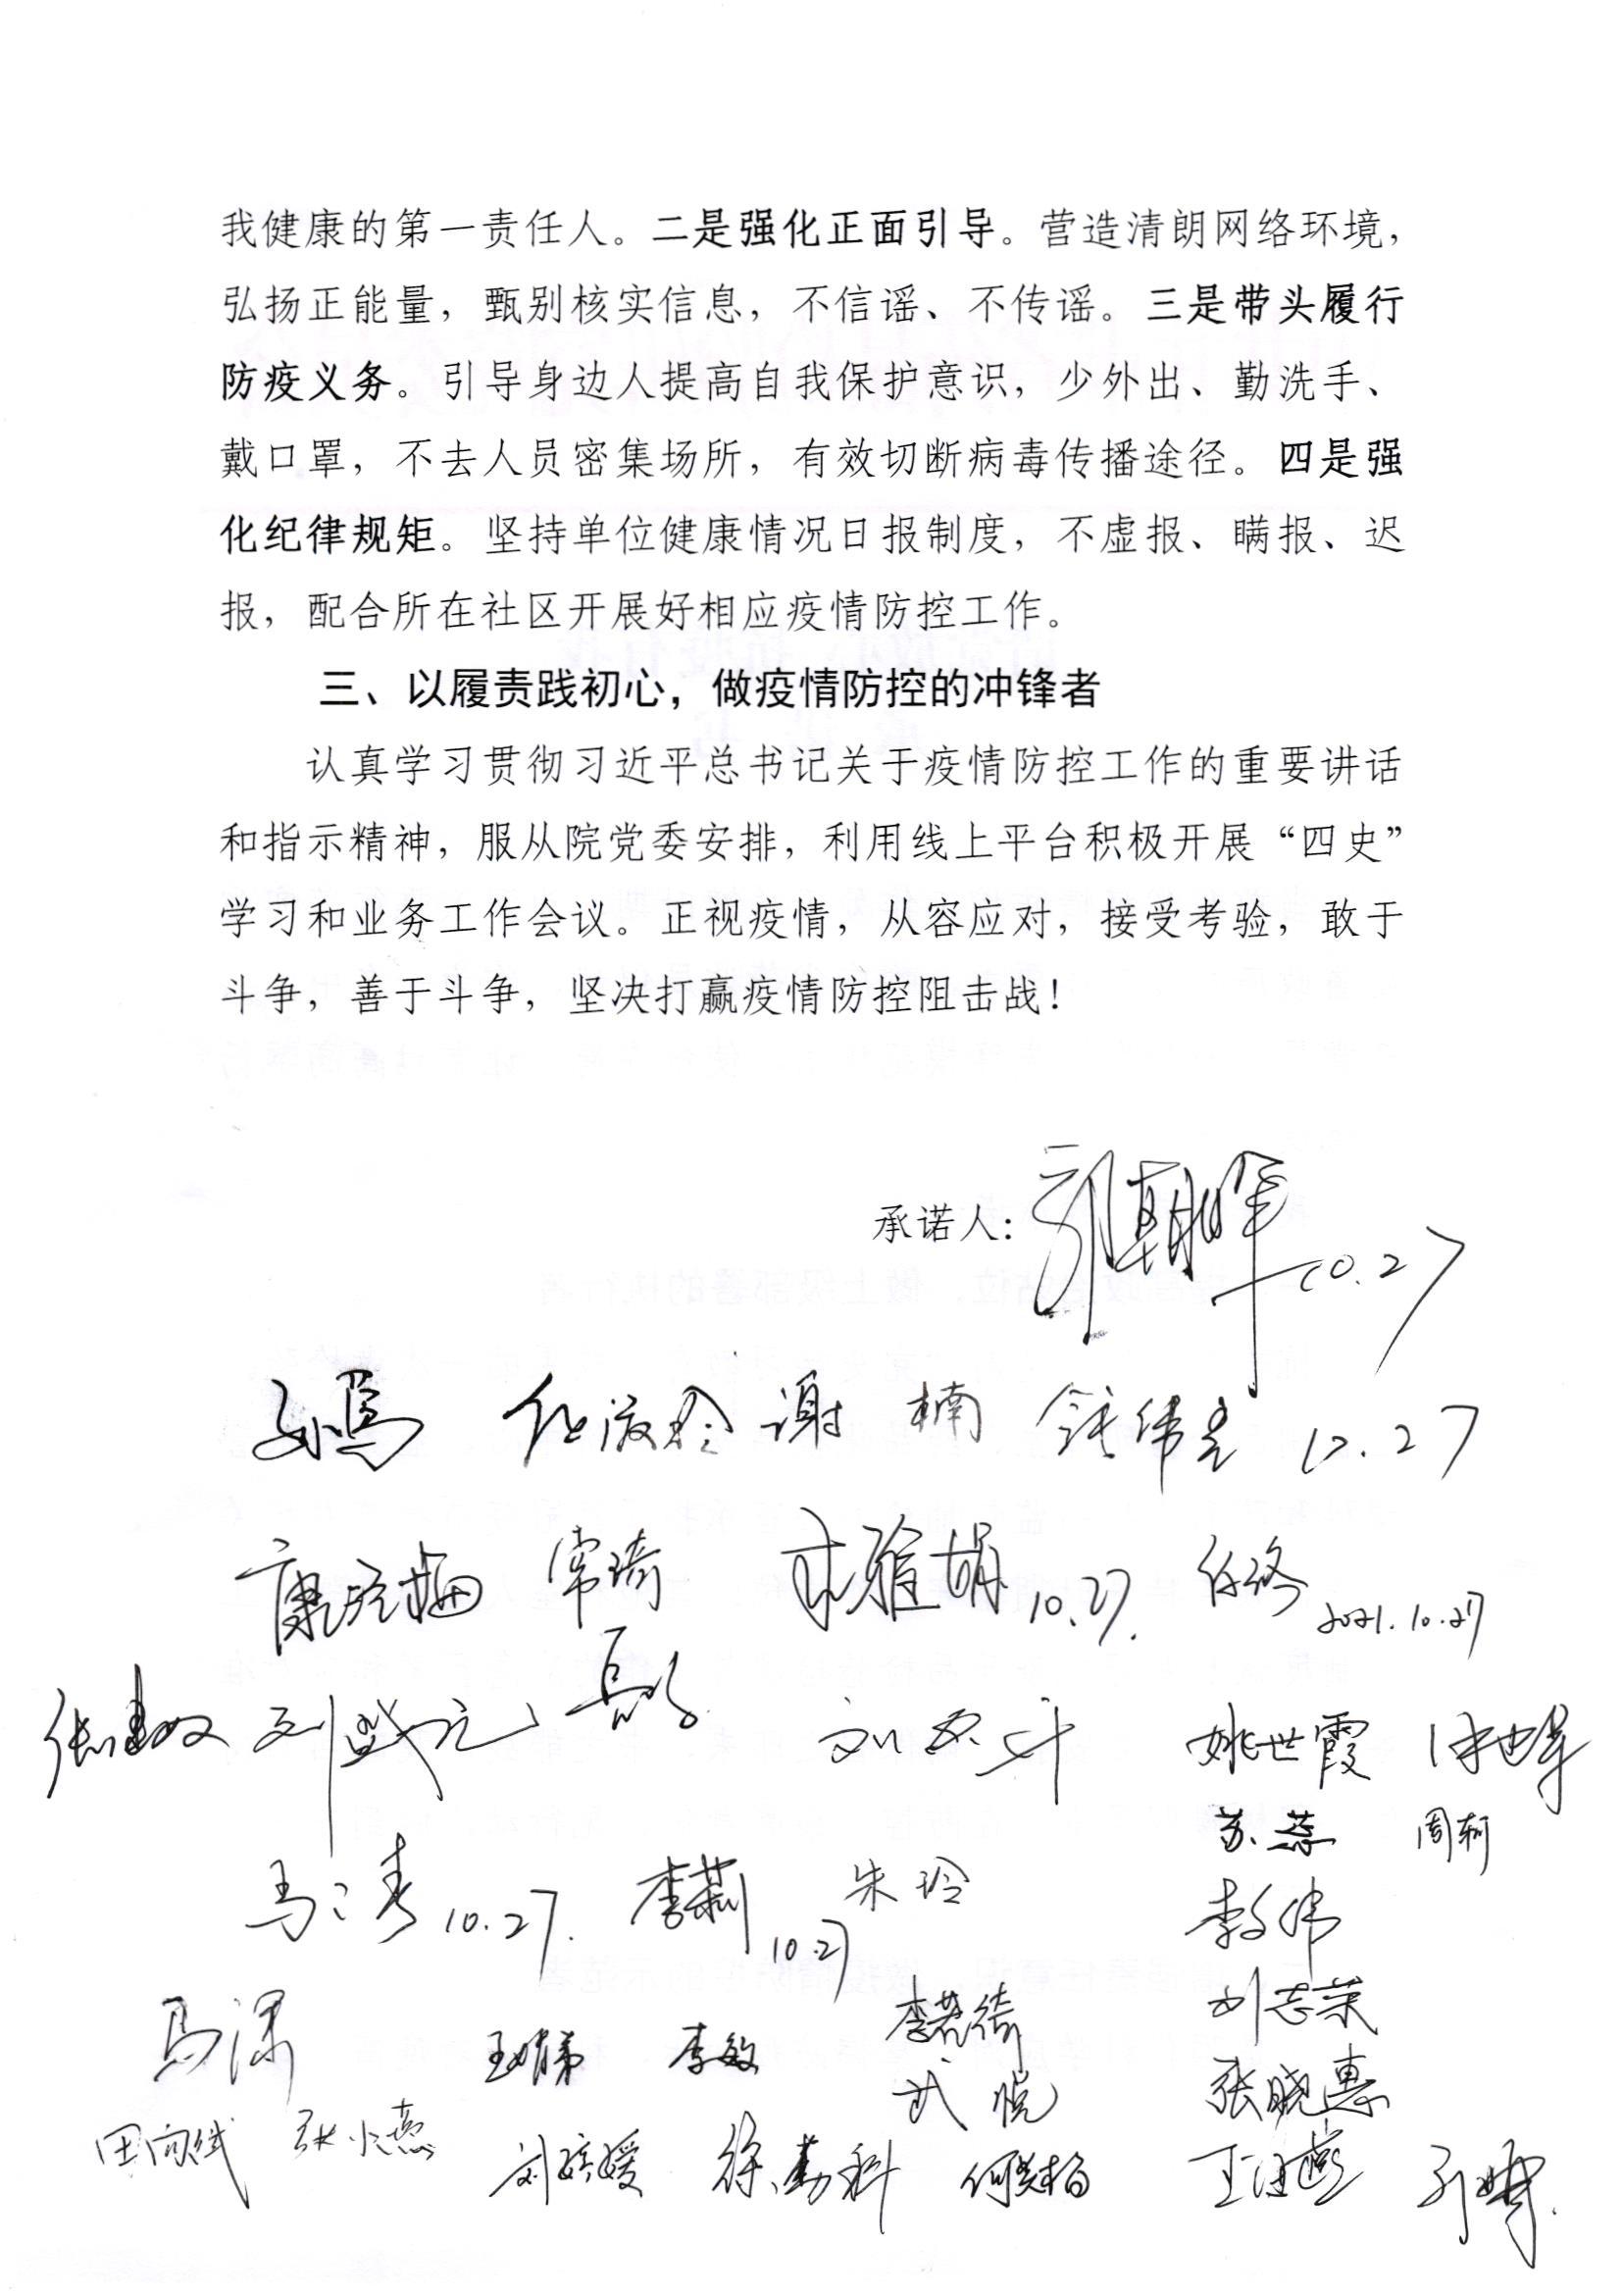 我健康的第一责任人。二是强化正面引导。营造清朗网络环境，
弘扬正能量，甄别核实信息，不信谣、不传谣。三是带头履行
防疫义务。引导身边人提高自我保护意识，少外出、勤洗手、
戴口罩，不去人员密集场所，有效切断病毒传播途径。四是强
化纪律规矩。坚持单位健康情况日报制度，不虚报、瞒报、迟
报，配合所在社区开展好相应疫情防控工作。
三、以履责践初心，做疫情防控的冲锋者
认真学习贯彻习近平总书记关于疫情防控工作的重要讲话
和指示精神，服从院党委安排，利用线上平台积极开展“四史”
学习和业务工作会议。正视疫情，从容应对，接受考验，敢于
斗争，善于斗争，坚决打赢疫情防控阻击战！
承诺人：郭朝晖 10.27
谢楠 10.27
常琦 10.27. 任洛 2021.10.27
姚世霞
苏蕊 周轲
10.27. 李莉 10.27 朱玲
李伟
刘志荣
李敏
武悦 张晓惠
张小燕
徐勤科